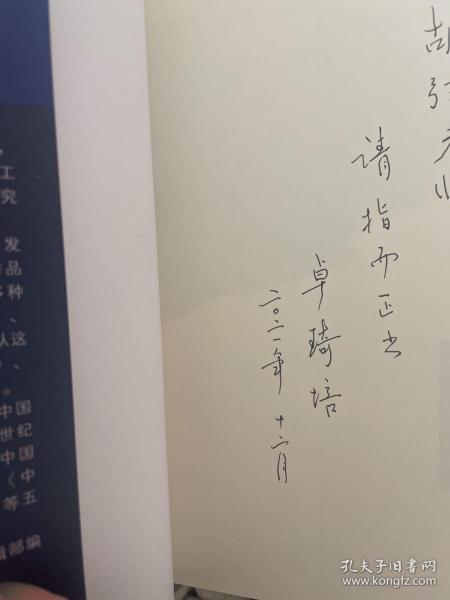 工
究
发
作品
多种
、
从这
、
。
中国
世纪
中国
〈中
等五
部编
胡
请指而正之
卓琦培
二〇二一年 十二月
孔夫子旧书网
www.kongfz.com